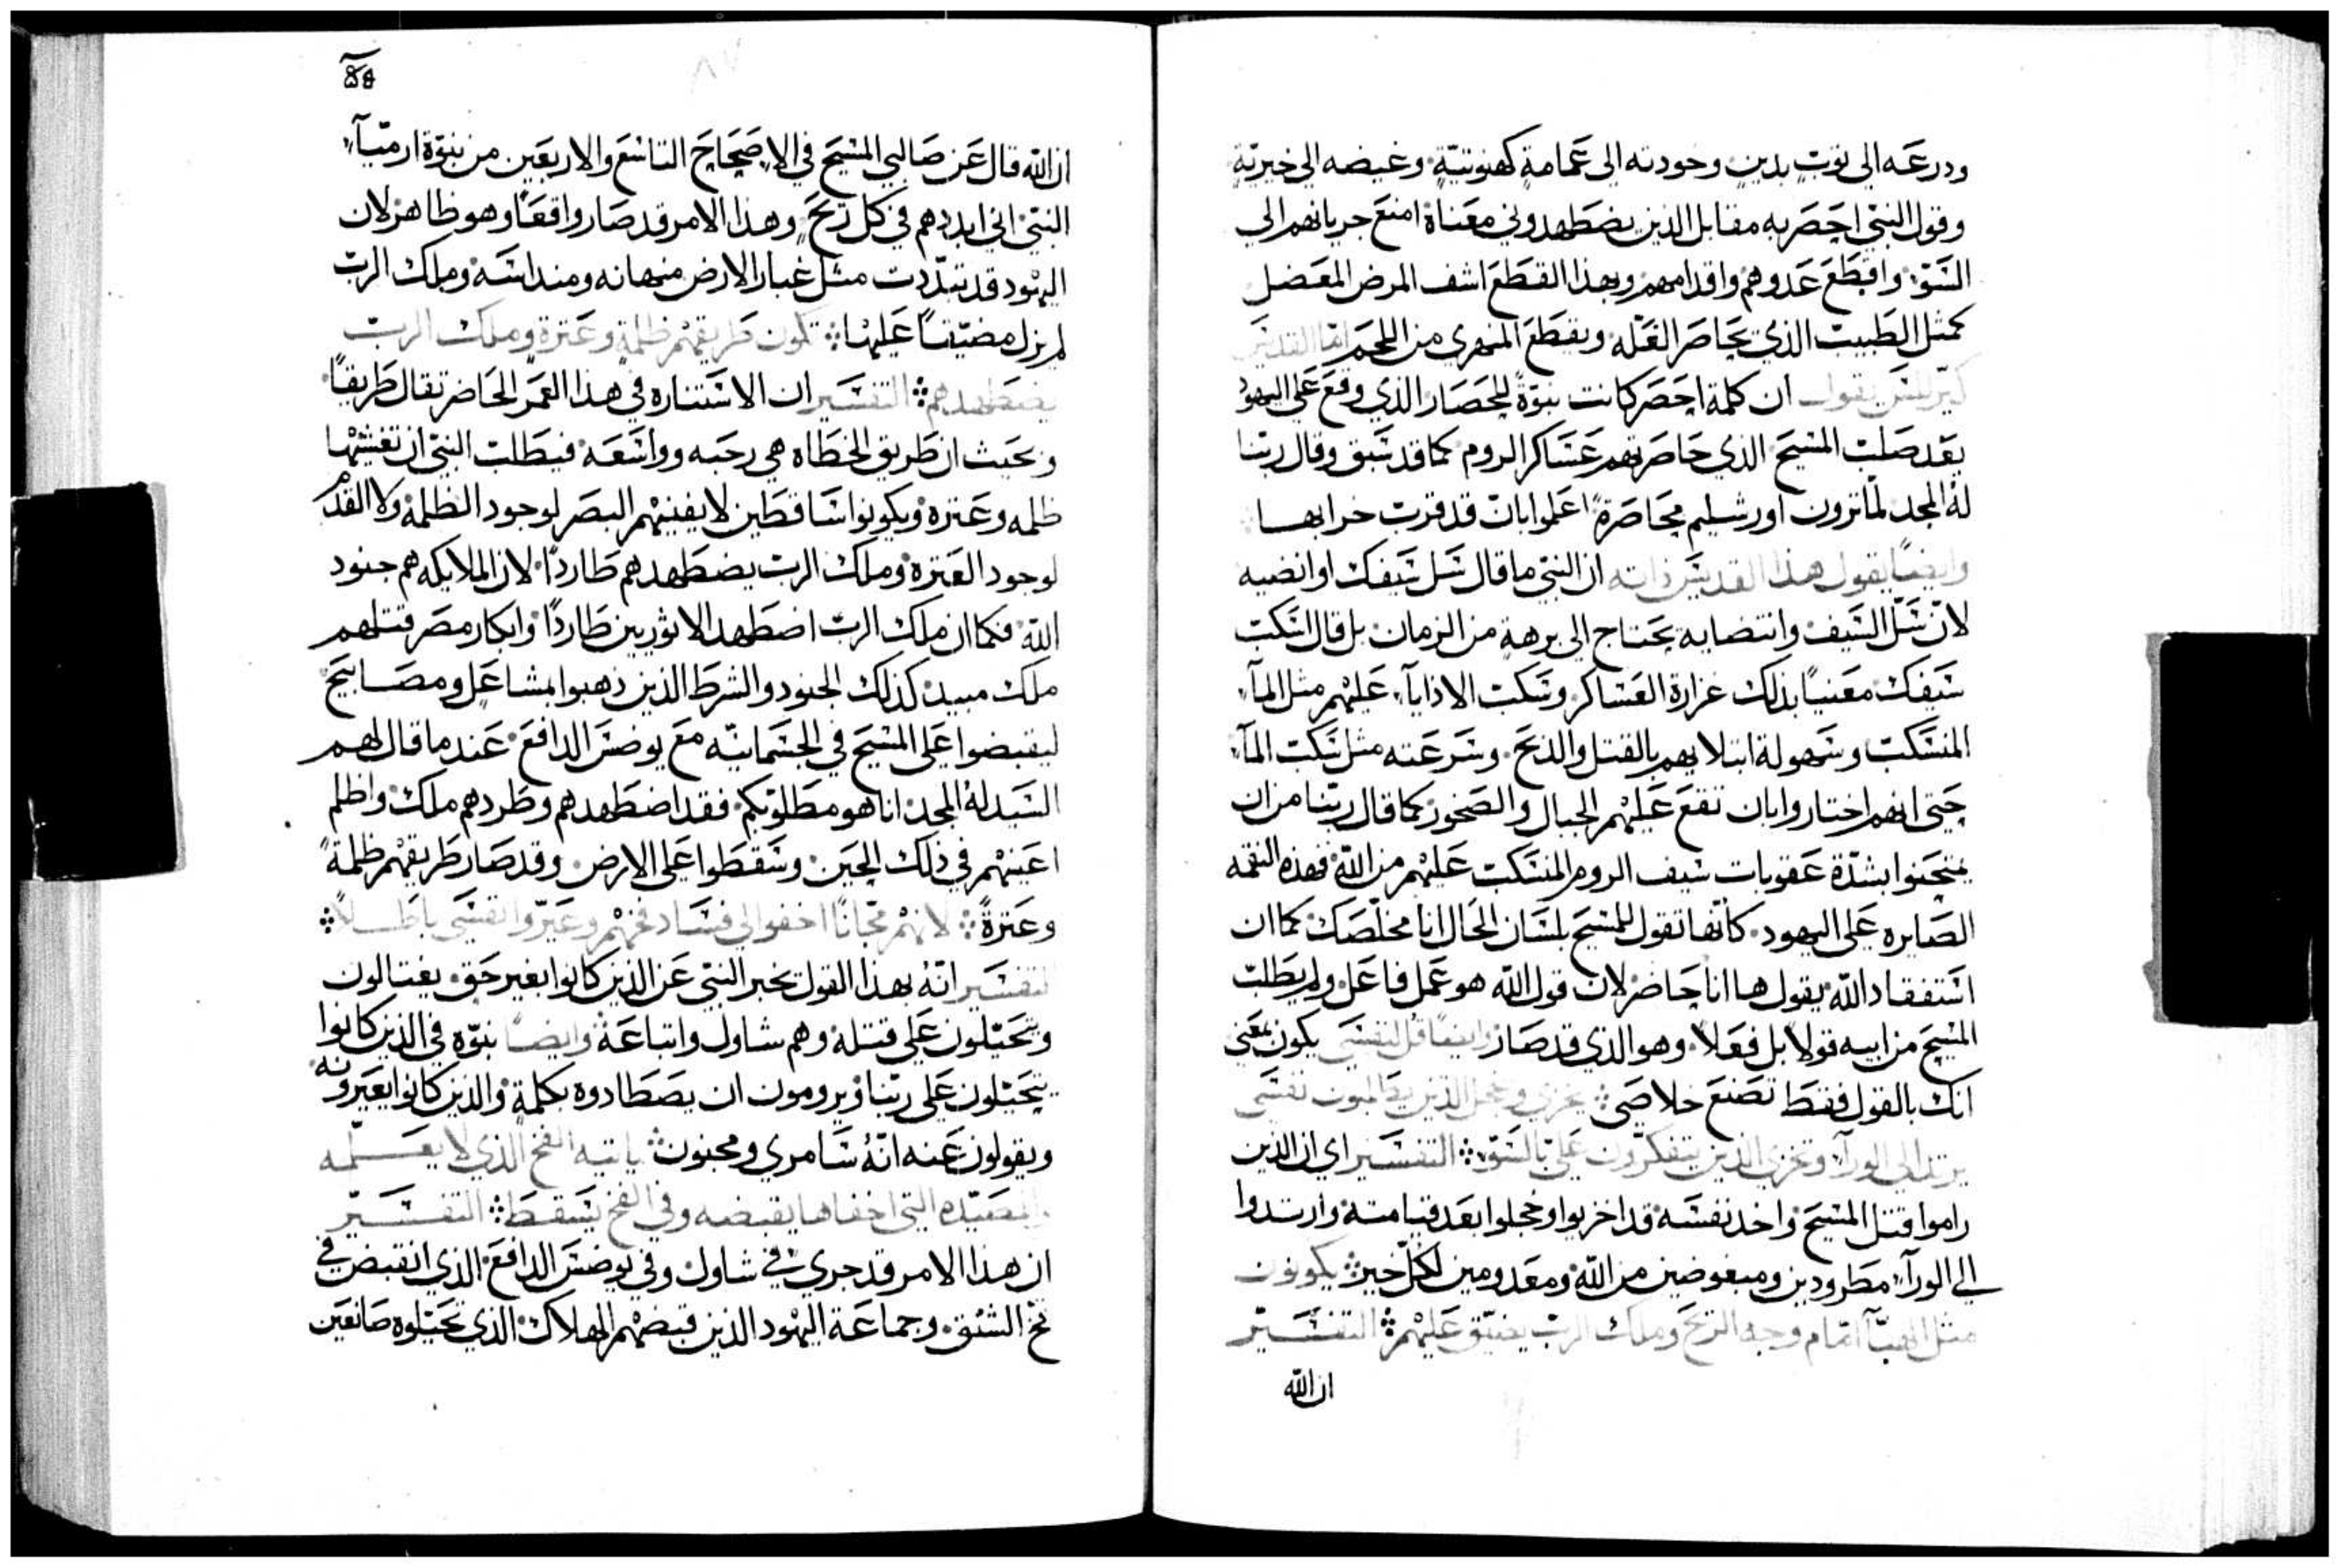 ودرعه الى ثوبٍ بدينٍ وخودته الى عمامةٍ كهنوتيّةٍ وغيضه الى خيريّةٍ
وقول النبيّ احصر به مقابل الذين يضطهدوني معناهُ امنع جريانهم الى
السّوّ واقطع عدوهم واقدامهم وبهذا القطع اشف المرض المعضل
كمثل الطبيب الذي يحاصر العلّه ويقطع المنهري من اللحم امّا القديس
كيرللس يقول ان كلمة احصر كانت نبوّةً للحصار الذي وقع على اليهود
بعد صلب المسيح الذي حاصرتهم عساكر الروم كما قد سبق وقال ربّنا
لهُ المجد لمّا ترون اورشليم محاصَرةً اعلموا بان قد قرب خرابها
وايضًا يقول هذا القديس ذاته ان النبيّ ما قال سل سيفك او انضيه
لانّ سلّ السيف وانتضايه يحتاج الى برهةٍ من الزمان بل قال اسكب
سيفك معنيًا بذلك غزارة العساكر وسكب الاذايآء عليهم مثل المآء
المنسكب وسهولة ابتلايهم بالقتل والذبح وسرعته مثل سكب المآء
حتى انهم اختاروا بان تقع عليهم الجبال والصخور كما قال ربّنا من ان
يمتحنوا بشدّة عقوبات سيف الروم المنسكب عليهم من الله فهذه النقمه
الصايره على اليهود كانّها تقول للمسيح بلسان الحال انا مخلّصك كما ان
استفقاد الله يقول ها انا حاضر لان قول الله هو عمل فاعل ولم يطلب
المسيح من ابيه قولًا بل فعلًا وهو الذي قد صار وايضًا قل لنفسي يكون بمعنى
انك بالقول فقط تصنع خلاصي يخزى ويخجل الذين يطلبون نفسي
يرتد الى الورآء ويخزى الذين يتفكرّون عليّ بالسّوّ التفسير اي ان الذين
راموا قتل المسيح واخد نفسه قد اخزيوا وخجلوا بعد قيامته وارتدوا
الى الورآء مطرودين ومبغوضين من الله ومعدومين لكلّ خير يكونون
مثل الهبآ امام وجه الريح وملك الربّ يضيّق عليهم التفسير
ان الله
ان الله قال عن صالبي المسيح في الاصحاح التاسع والاربعين من نبوّة ارميآء
النبيّ اني ابددهم في كل ريحٍ وهذا الامر قد صار واقعًا وهو ظاهر لان
اليهود قد تبدّدت مثل غبار الارض منهانه ومنداسه وملك الربّ
لم يزل مضيّقًا عليها تكون طريقهم ظلمةٍ وعثرة وملك الربّ
يضطهدهم التفسير ان الاستناره في هذا العمر الحاضر تقال طريقًا
وبحيث ان طريق الخطاه هي رحبه وواسعه فيطلب النبيّ ان تغشيها
ظلمه وعثره ويكونوا ساقطين لا يفيدهم البصر لوجود الظلمه ولا القدم
لوجود العثره وملك الرب يضطهدهم طاردًا لان الملايكه هم جنود
الله فكما ان ملاك الربّ اضطهد الاثوريين طاردًا وابكار مصر قتلهم
ملاك مبيد كذلك الجنود والشرط الذين ذهبوا بمشاعل ومصابيح
ليقبضوا على المسيح في الجسمانيّه مع يوضس الدافع عند ما قال لهم
السيد لهُ المجد انا هو مطلوبكم فقد اضطهدهم وطردهم ملاك واظلم
اعينهم في ذلك الحين وسقطوا على الارض وقد صار طريقهم ظلمةً
وعثرةً لانهم مجّانًا اخفوا لي فساد فخهم وعيّروا نفسي باطلًا
التفسير انّهُ بهذا القول يخبر النبيّ عن الذين كانوا بغير حق يغتالون
ويتحيّلون على قتله وهم شاول واتباعه وايضًا نبوّه في الذين كانوا
يتحيّلون على ربّنا ويرومون ان يصطادوه بكلمةٍ والذين كانوا يعيرونه
ويقولون عنه انّهُ سامري ومجنون ياتيه الفخ الذي لا يعلمه
والمصيّده التي اخفاها يقبضه وفي الفخ يسقط التفسير
ان هذا الامر قد جرى في شاول وفي يوضس الدافع الذي انقبض في
فخ الشنق وجماعة اليهود الذين قبضهم الهلاك الذي تحيّلوه صانعين